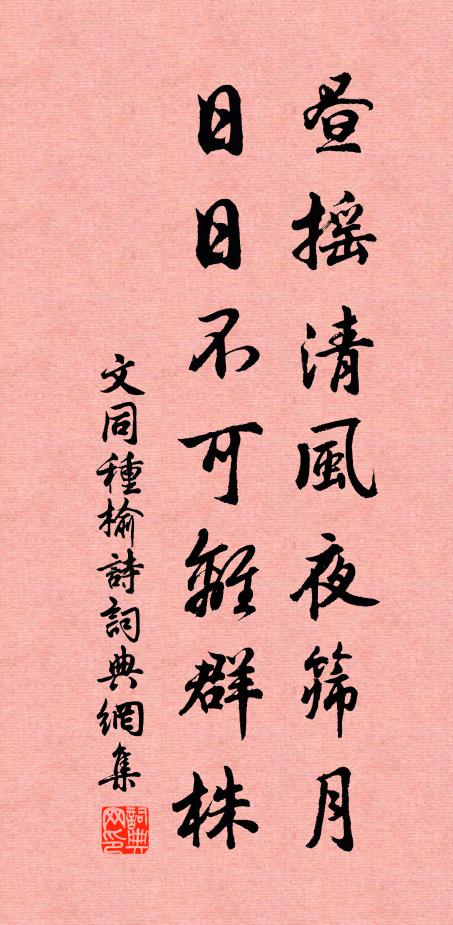 晝摇清風夜篩月
日日不可離群株
文同種榆詩詞典網集
詞典网印